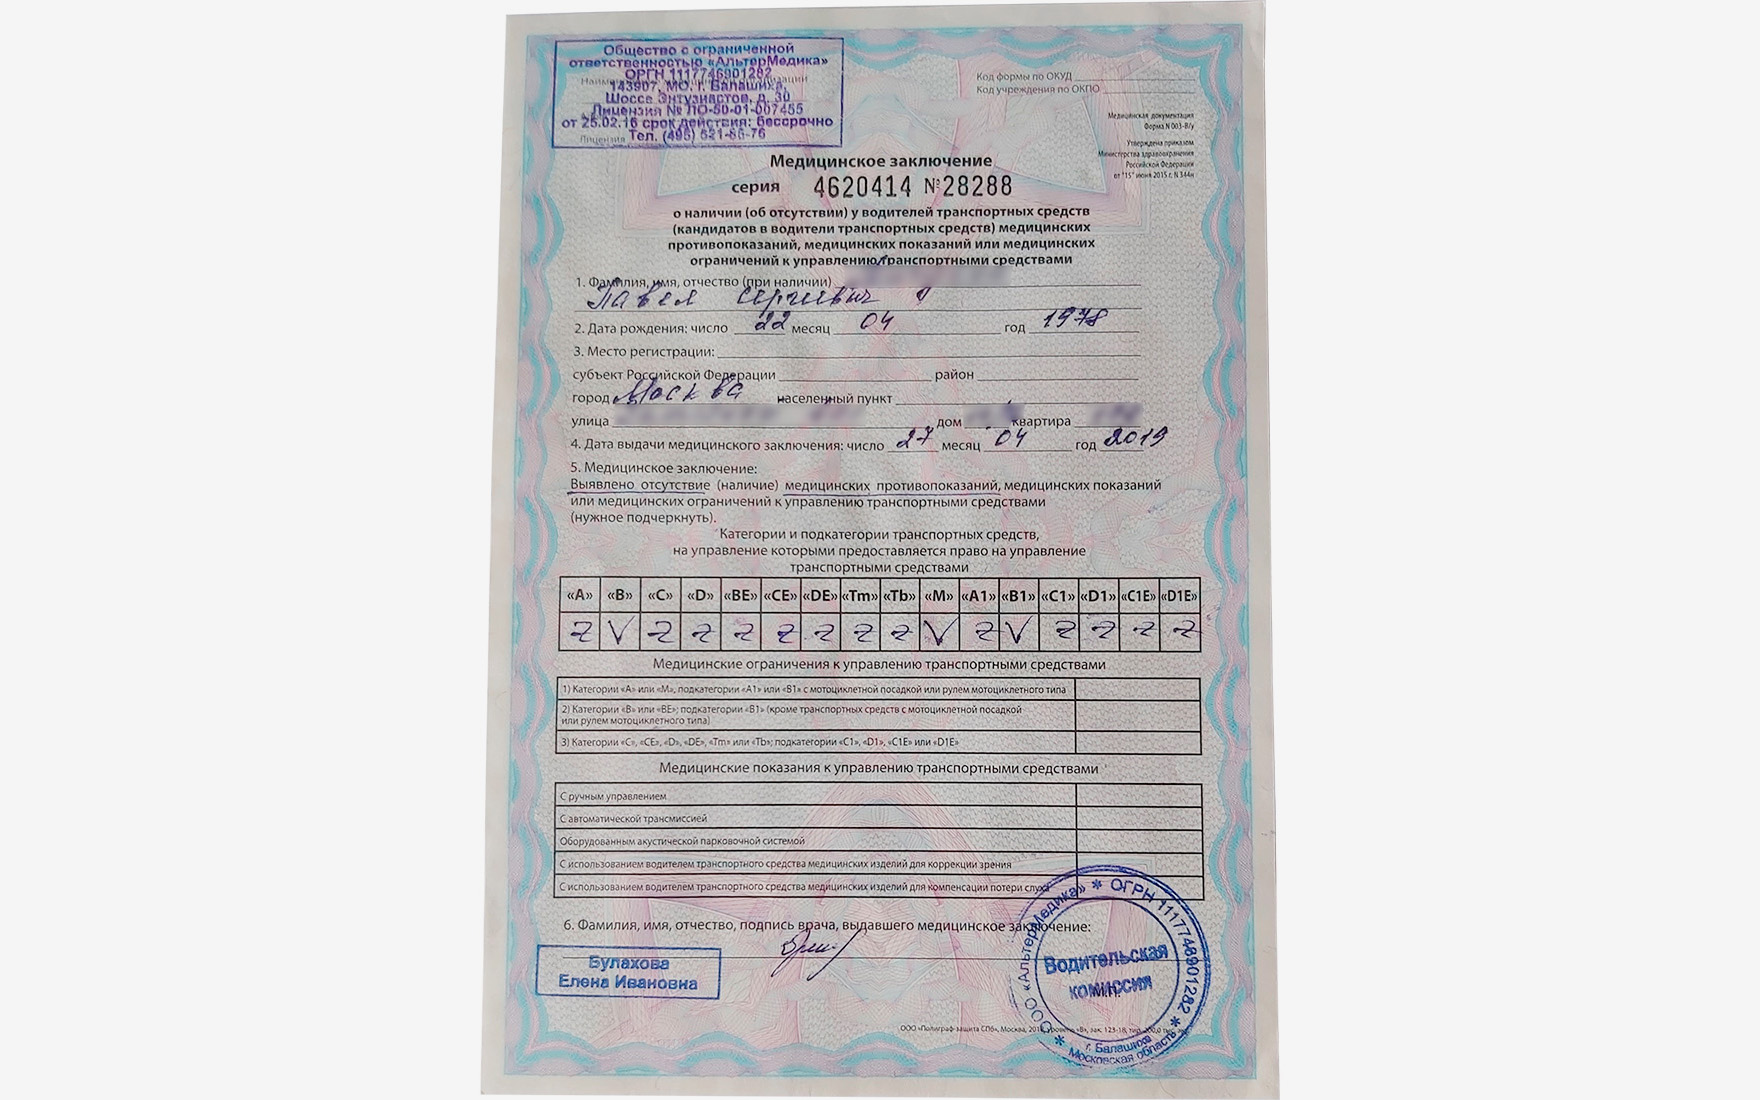 Общество с ограниченной
ответственностью «АльтерМедика»
ОРГН 1117746901282
143907, МО, г. Балашиха,
Шоссе Энтузиастов, д. 30
Лицензия № ЛО-50-01-007455
от 25.02.16 срок действия: бессрочно
Тел. (495) 521-86-76
Лицензия
Код формы по ОКУД
Код учреждения по ОКПО
Медицинская документация
Форма N 003-В/у
Утверждена приказом
Министерства здравоохранения
Российской Федерации
от "15" июня 2015 г. N 344н
Медицинское заключение
серия 4620414 №28288
о наличии (об отсутствии) у водителей транспортных средств
(кандидатов в водители транспортных средств) медицинских
противопоказаний, медицинских показаний или медицинских
ограничений к управлению транспортными средствами
1. Фамилия, имя, отчество (при наличии)
Павел Сергеевич
2. Дата рождения: число 22 месяц 04 год 1978
3. Место регистрации:
субъект Российской Федерации район
город Москва населенный пункт
улица дом квартира
4. Дата выдачи медицинского заключения: число 27 месяц 04 год 2019
5. Медицинское заключение:
Выявлено отсутствие (наличие) медицинских противопоказаний, медицинских показаний
или медицинских ограничений к управлению транспортными средствами
(нужное подчеркнуть).
Категории и подкатегории транспортных средств,
на управление которыми предоставляется право на управление
транспортными средствами
«A» «B» «C» «D» «BE» «CE» «DE» «Tm» «Tb» «M» «A1» «B1» «C1» «D1» «C1E» «D1E»
Z V Z Z Z Z Z Z Z V Z V Z Z Z Z
Медицинские ограничения к управлению транспортными средствами
1) Категории «A» или «M», подкатегории «A1» или «B1» с мотоциклетной посадкой или рулем мотоциклетного типа
2) Категории «B» или «BE»; подкатегории «B1» (кроме транспортных средств с мотоциклетной посадкой
или рулем мотоциклетного типа)
3) Категории «C», «CE», «D», «DE», «Tm» или «Tb»; подкатегории «C1», «D1», «C1E» или «D1E»
Медицинские показания к управлению транспортными средствами
С ручным управлением
С автоматической трансмиссией
Оборудованным акустической парковочной системой
С использованием водителем транспортного средства медицинских изделий для коррекции зрения
С использованием водителем транспортного средства медицинских изделий для компенсации потери слуха
6. Фамилия, имя, отчество, подпись врача, выдавшего медицинское заключение:
Булахова
Елена Ивановна
ООО «АльтерМедика» * ОГРН 1117746901282 *
Водительская
комиссия
М.П.
г. Балашиха
Московская область
ООО «Полиграф-защита СПб», Москва, уровень «В», зак. 123-18,